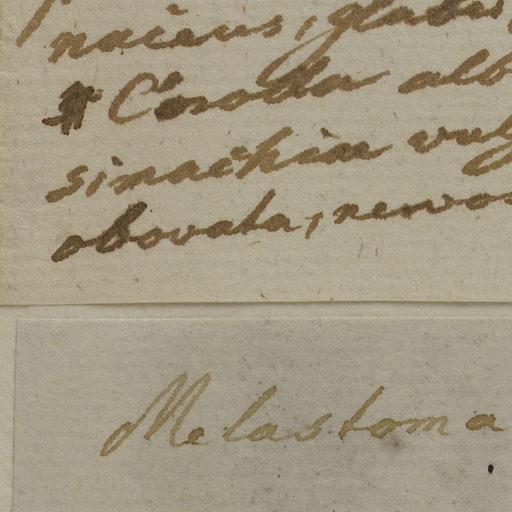 naceus, glabr
Corolla alb
simachiae vulg
obovata, nervos
Melastoma